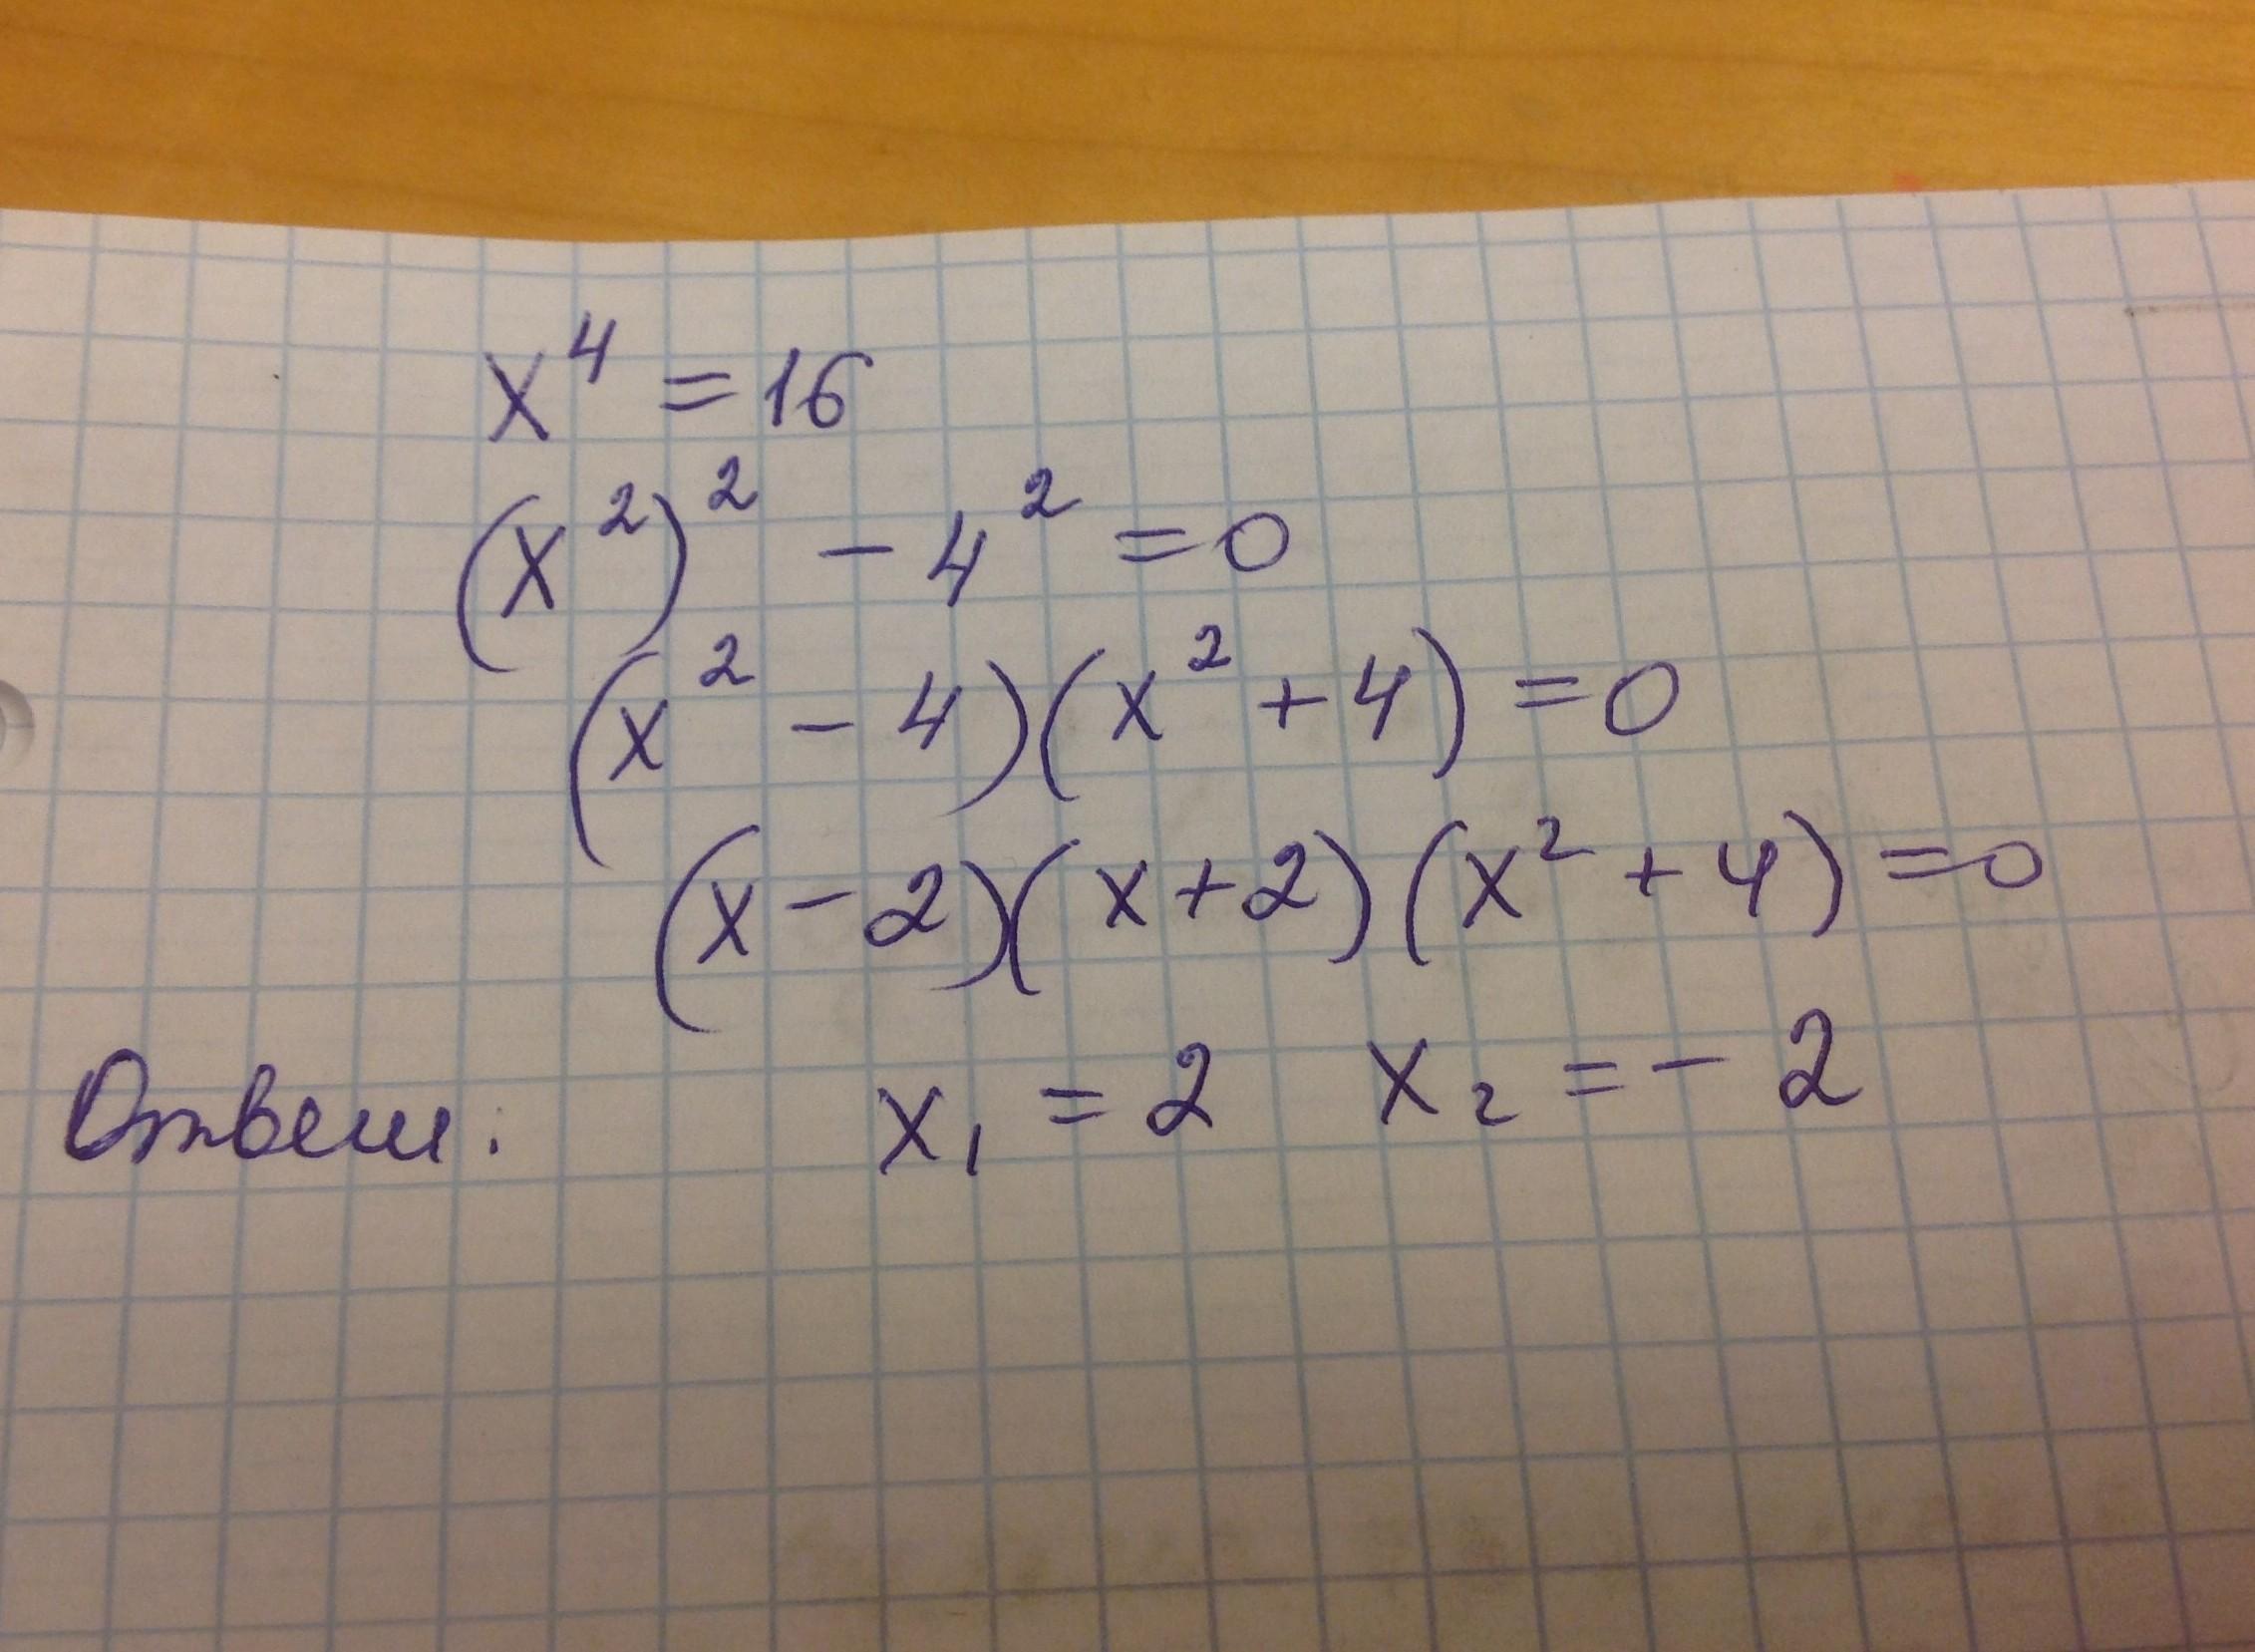 x⁴ = 16
(x²)² - 4² = 0
(x² - 4)(x² + 4) = 0
(x - 2)(x + 2)(x² + 4) = 0
Ответ: x₁ = 2 x₂ = - 2